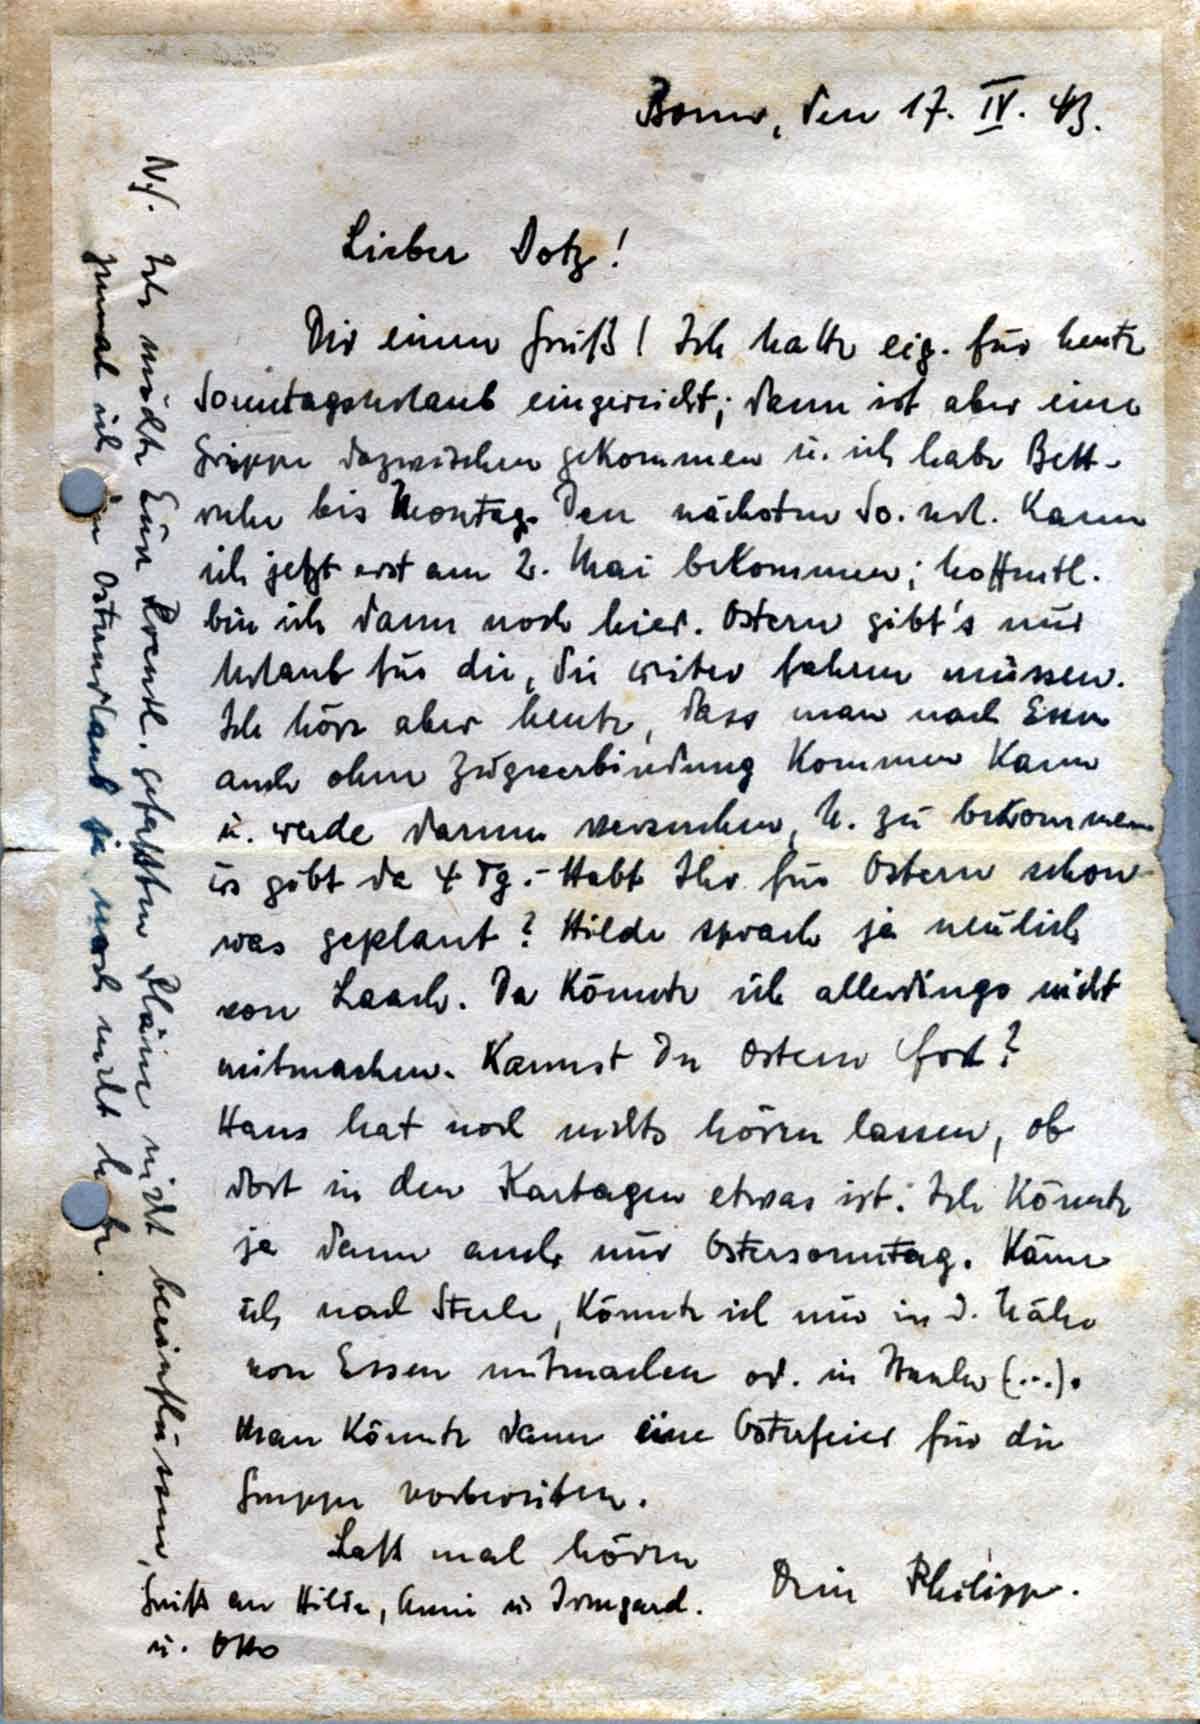 Bonn, den 17. IV. 43.
Lieber Dotz!
Dir einen Gruß! Ich hatte eig. für heute
Sonntagsurlaub eingereicht; dann ist aber eine
Grippe dazwischen gekommen u. ich habe Bett-
ruhe bis Montag. Den nächsten So. url. kann
ich jetzt erst am 2. Mai bekommen; hoffentl.
bin ich dann noch hier. Ostern gibt's nur
Urlaub für die, die weiter fahren müssen.
Ich höre aber heute, dass man nach Essen
auch ohne Zugverbindung kommen kann
u. werde darum versuchen, U. zu bekommen
es gibt da 4 Tg. - Habt Ihr für Ostern schon
was geplant? Hilde sprach ja neulich
von Laach. Da könnte ich allerdings nicht
mitmachen. Kannst Du Ostern fort?
Hans hat noch nichts hören lassen, ob
dort in den Kartagen etwas ist. Ich könnte
ja dann auch nur Ostersonntag. Käme
ich nach Steele, könnte ich nur in d. Nähe
von Essen mitmachen od. in (...).
Man könnte dann eine Osterfeier für die
Gruppe vorbereiten.
Laß mal hören
Dein Philipp.
Gruß an Hilde, Änni u. Irmgard.
u. Otto
NS. Ich möchte Eure eventl. gefaßten Pläne nicht beeinflussen,
zumal ich den Osterurlaub ja noch nicht habe.